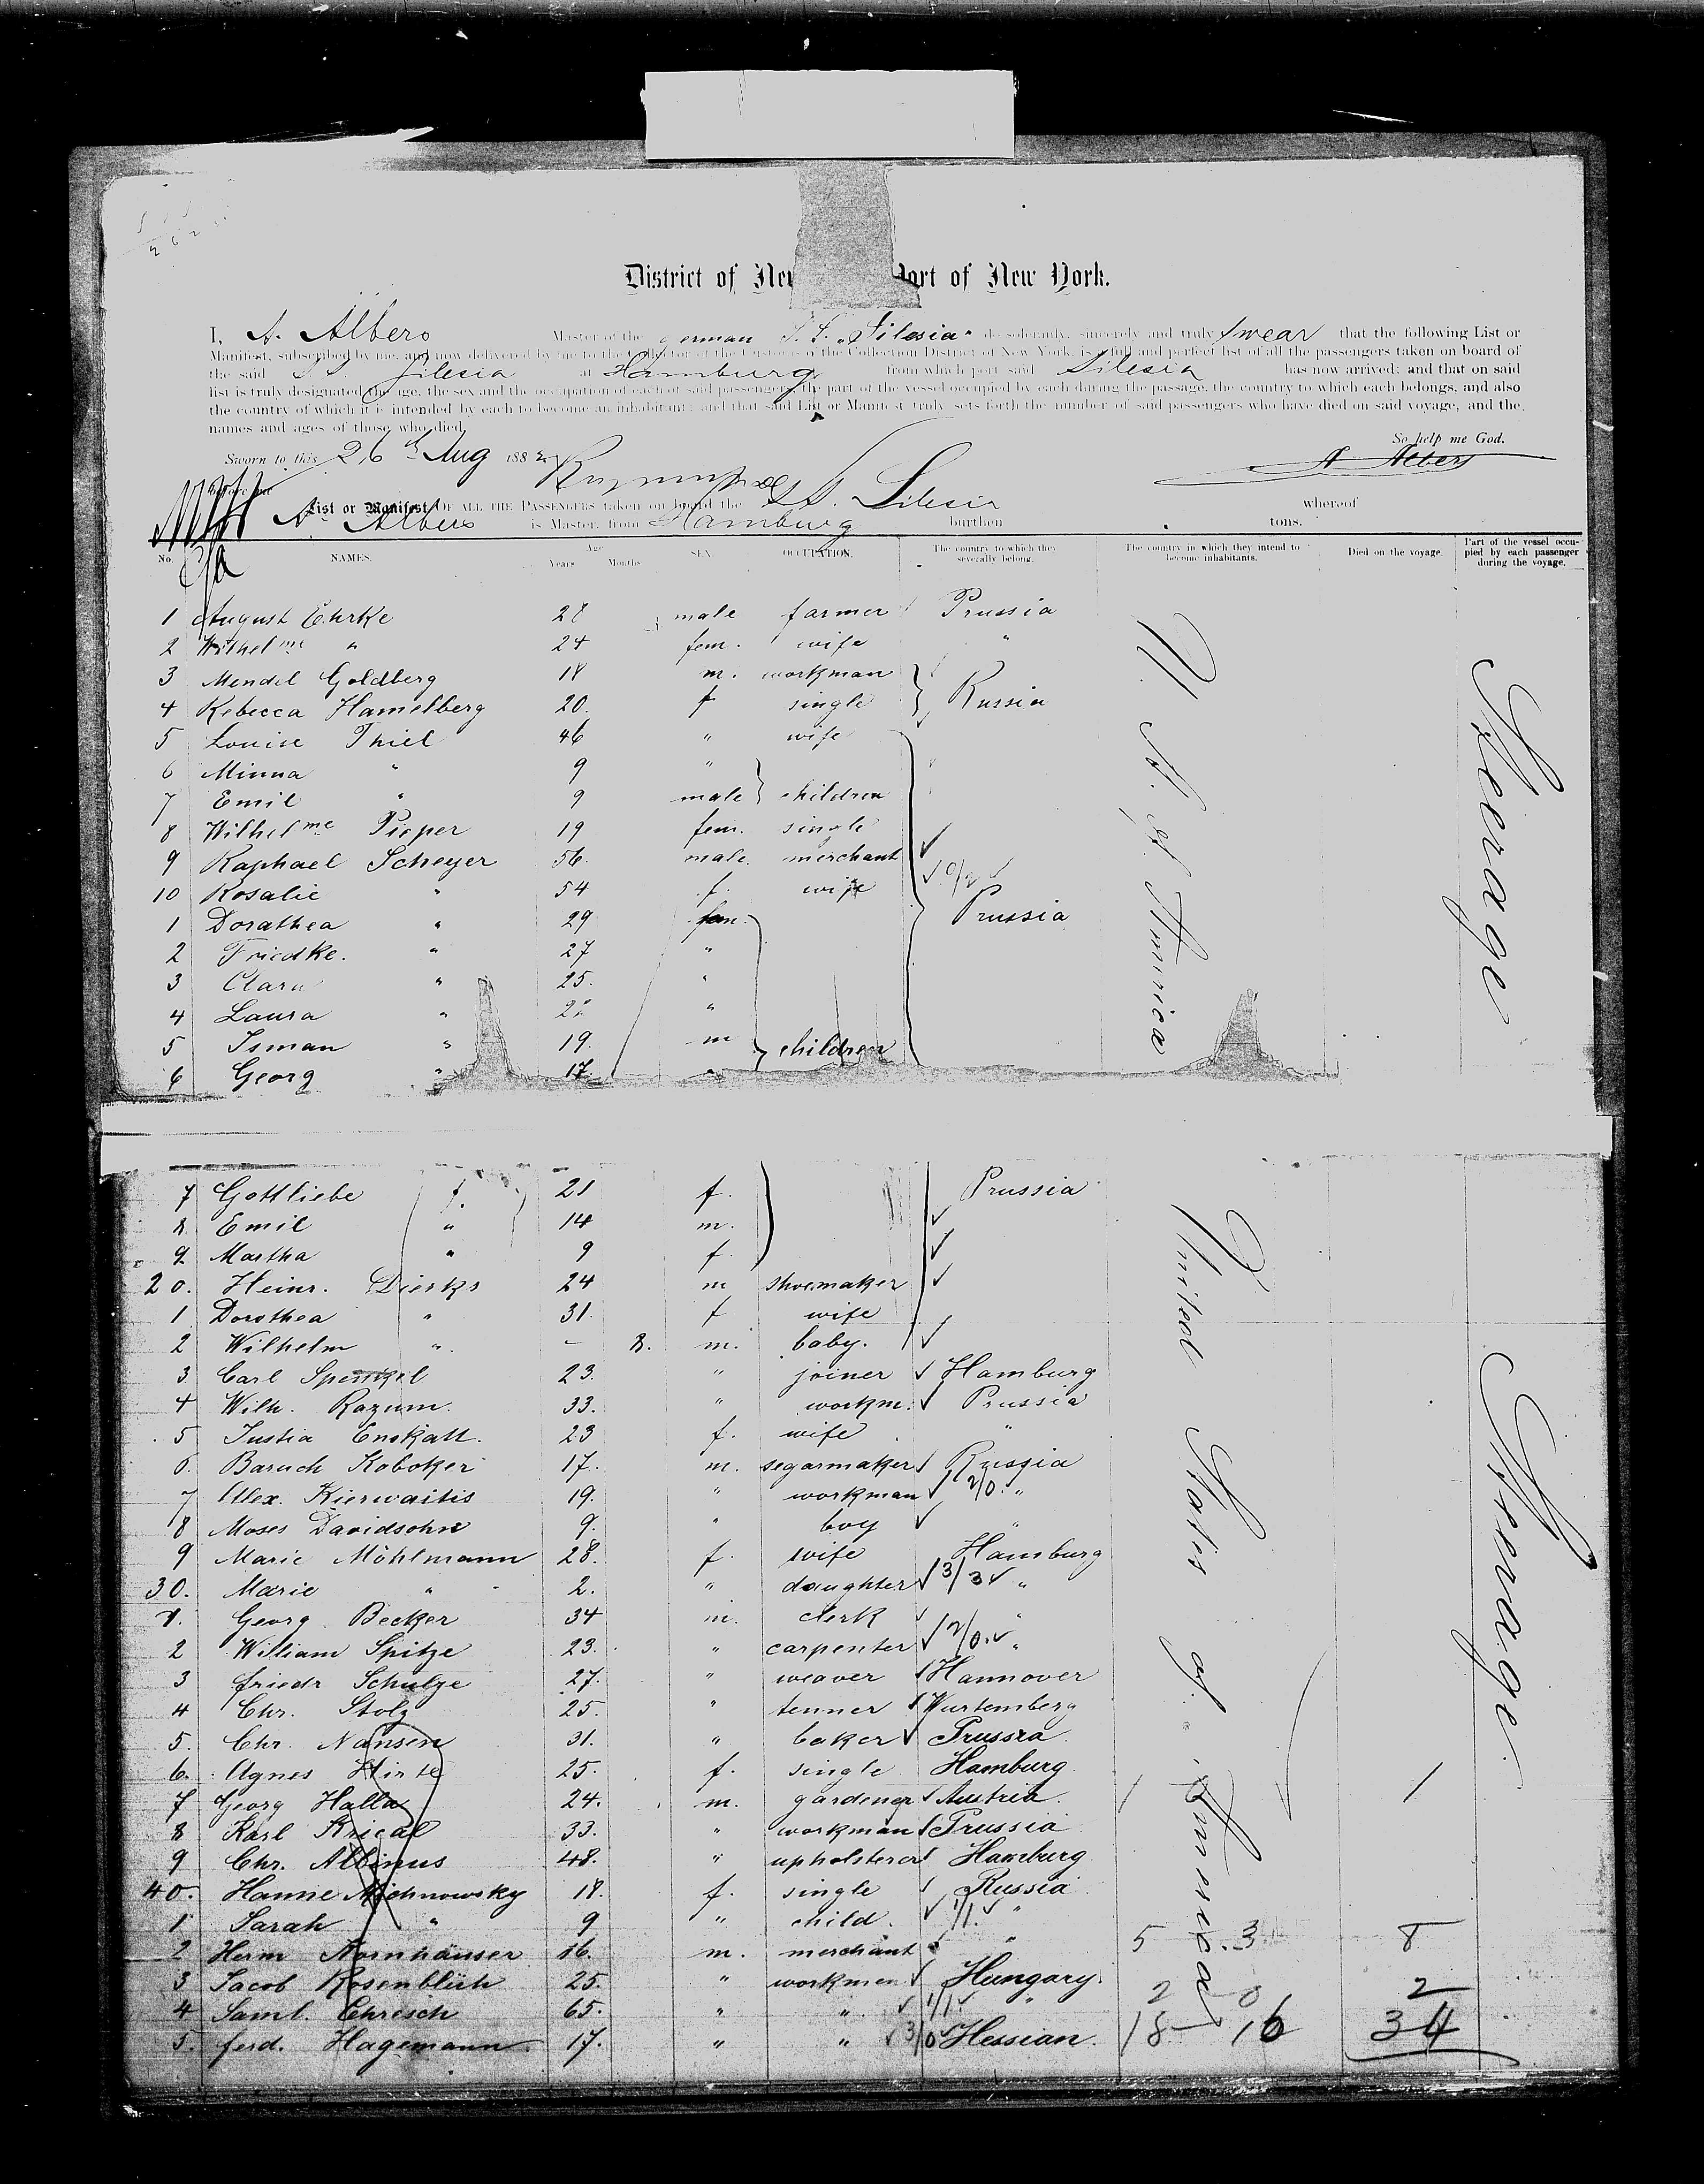 District of New Port of New York.
I, A. Albers Master of the german S.S. "Silesia" do solemnly, sincerely and truly swear that the following List or
Manifest, subscribed by me, and now delivered by me to the Collector of the Customs of the Collection District of New York, is a full and perfect list of all the passengers taken on board of
the said S.S. Silesia at Hamburg from which port said Silesia has now arrived; and that on said
list is truly designated the age, the sex and the occupation of each of said passengers, the part of the vessel occupied by each during the passage, the country to which each belongs, and also
the country of which it is intended by each to become an inhabitant; and that said List or Manifest truly sets forth the number of said passengers who have died on said voyage, and the
names and ages of those who died.
So help me God.
Sworn to this 26th Aug 1882 A Albers
before me
List or Manifest OF ALL THE PASSENGERS taken on board the S.S. Silesia whereof
A. Albers is Master, from Hamburg burthen tons.
No. NAMES. Age Years Months SEX. OCCUPATION. The country to which they severally belong. The country in which they intend to become inhabitants. Died on the voyage. Part of the vessel occupied by each passenger during the voyage.
1 August Ehrke 28 male farmer Prussia
2 Wilhelme " 24 fem. wife "
3 Mendel Goldberg 18 m. workman
4 Rebecca Hamelberg 20. f single Russia
5 Louise Thiel 46 " wife
6 Minna " 9 "
7 Emil " 9 male children
8 Wilhelme Pieper 19 fem. single
9 Raphael Scheyer 56. male merchant
10 Rosalie " 54 f. wife
1 Dorathea " 29 fem. Prussia
2 Friedke. " 27 "
3 Clara " 25. "
4 Laura " "
5 Isman " 19. m children
6 Georg " 17. "
U. S. of America
Steerage
7 Gottliebe 21 f. Prussia
8 Emil " 14 m.
9 Martha " 9 f.
20. Heinr. Dierks 24 m shoemaker
1 Dorothea " 31. f wife
2 Wilhelm " - 8. m. baby.
3 Carl 23. " joiner Hamburg
4 Wilh. Razum 33. " workm. Prussia
5 Justia Enskatt. 23 f. wife "
6. Baruch Koboker 17. m. segarmaker Russia
7 Alex. Kierwaitis 19. " workman 2/0. "
8 Moses Davidsohn 9. " boy "
9 Marie Möhlmann 28. f. wife Hamburg
30. Marie " 2. " daughter 3/3 "
1. Georg Becker 34 m. clerk "
2 William Spitze 23. " carpenter 2/0. "
3 Friedr Schulze 27. " weaver Hannover
4 Chr. Stolz 25. " tenner Wurtemberg
5. Chr. Nansen 31. " baker Prussia
6. Agnes Hirte 25. f. single Hamburg
7 Georg Halla 24. m. gardener Austria. 1 1
8 Karl Krical 33. " workman Prussia
9 Chr. Albinus 48. " upholsterer Hamburg
40. Hanne Michnowsky 18. f. single Russia
1 Sarah " 9 " child. 1/1. "
2 Herm Kornhäuser 16. m. merchant " 5 3 8
3 Jacob Rosenblüh 25. " workmen Hungary. 2 0 2
4 Saml. Chresch 65. " " 1/1. "
5. ferd. Hagemann 17. " " 3/0 Hessian. 18 16 34
United States of America
Steerage.